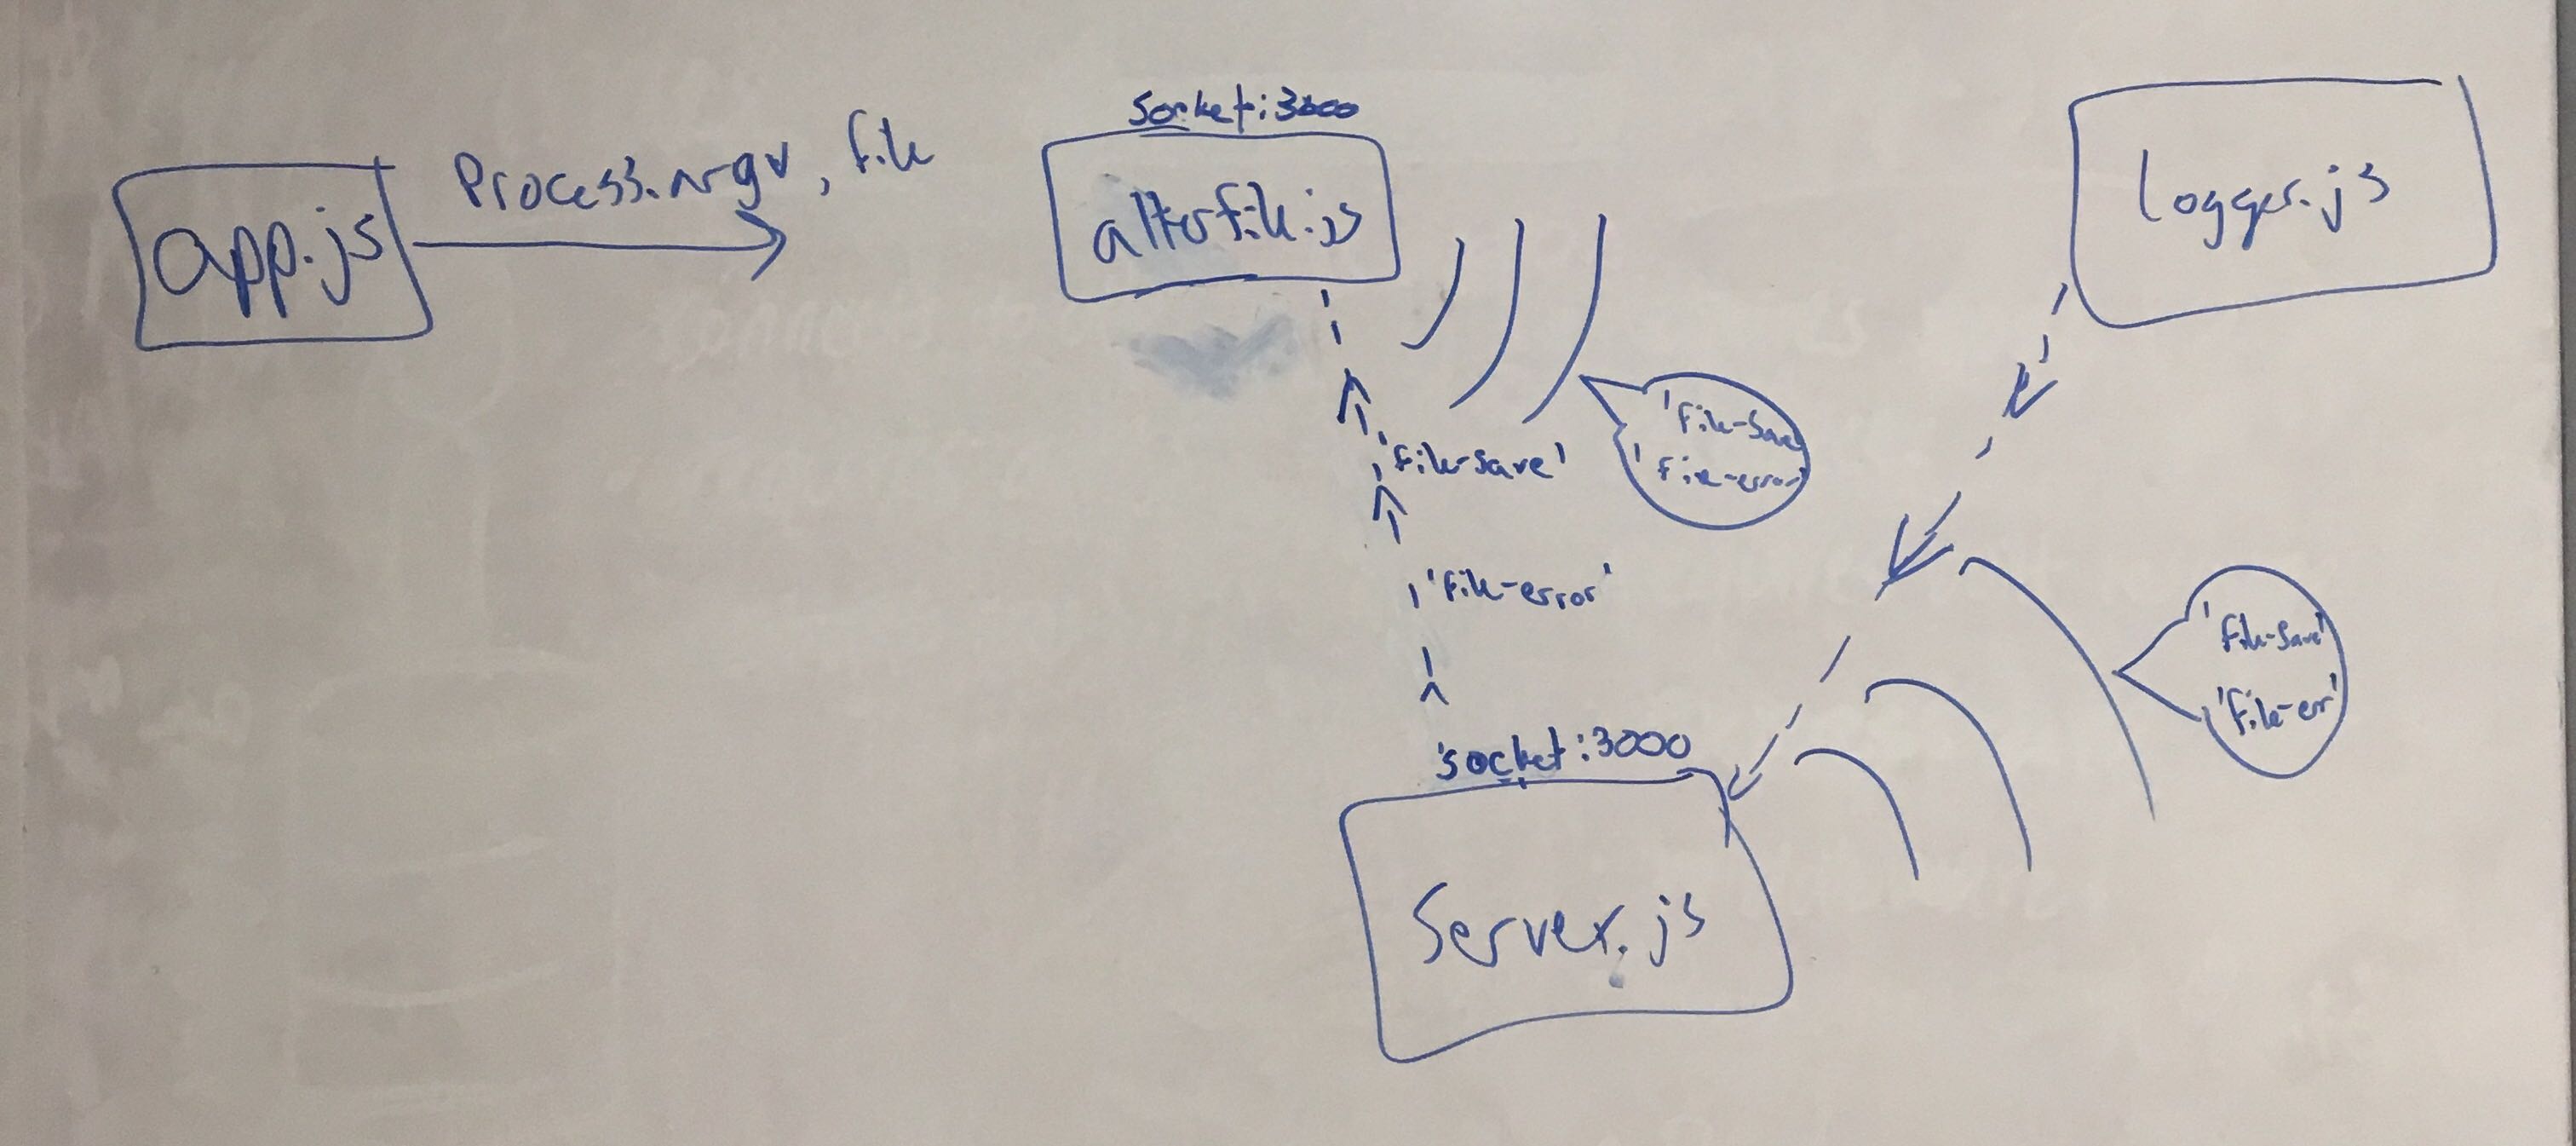 app.js
Process.argv, file
Socket:3000
alterfile.js
logger.js
'file-save'
'file-error'
'file-save'
'file-error'
'file-save'
'file-err'
socket:3000
Server.js